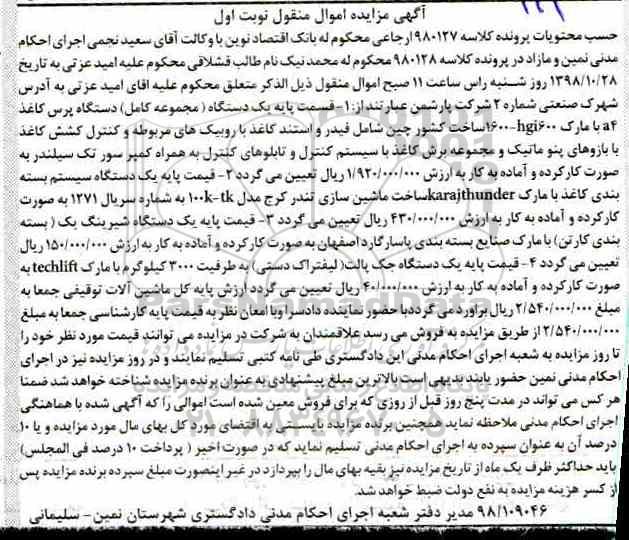 آگهی مزایده اموال منقول نوبت اول
حسب محتویات پرونده کلاسه ۹۸۰۱۲۷ ارجاعی محکوم له بانک اقتصاد نوین با وکالت آقای سعید نجمی اجرای احکام
مدنی نمین و مازاد در پرونده کلاسه ۹۸۰۱۲۸ محکوم له محمد نیک نام طالب قشلاقی محکوم علیه امید عزتی به تاریخ
۱۳۹۸/۱۰/۲۸ روز شنبه راس ساعت ۱۱ صبح اموال منقول ذیل الذکر متعلق محکوم علیه اقای امید عزتی به آدرس
شهرک صنعتی شماره ۲ شرکت پارشمن عبارتند از: ۱- قسمت پایه یک دستگاه ( مجموعه کامل) دستگاه پرس کاغذ
a۴ با مارک hgi۶۰۰-۱۶۰۰ساخت کشور چین شامل فیدر و استند کاغذ با روبیک های مربوطه و کنترل کشش کاغذ
با بازوهای پنو ماتیک و مجموعه برش کاغذ با سیستم کنترل و تابلوهای کنترل به همراه کمپر سور تک سیلندر به
صورت کارکرده و آماده به کار به ارزش ۱/۹۲۰/۰۰۰/۰۰۰ ریال تعیین می گردد ۲- قیمت پایه یک دستگاه سیستم بسته
بندی کاغذ با مارک karajthunderساخت ماشین سازی تندر کرج مدل ۱۰۰k-tk به شماره سریال ۱۲۷۱ به صورت
کارکرده و آماده به کار به ارزش ۴۳۰/۰۰۰/۰۰۰ ریال تعیین می گردد ۳- قیمت پایه یک دستگاه شیرینگ پک ( بسته
بندی کارتن) با مارک صنایع بسته بندی پاسارگارد اصفهان به صورت کارکرده و آماده به کار به ارزش ۱۵۰/۰۰۰/۰۰۰ ریال
تعیین می گردد ۴- قیمت پایه یک دستگاه جک پالت( لیفتراک دستی) به ظرفیت ۳۰۰۰ کیلوگرم با مارک techlift به
صورت کارکرده و آماده به کار به ارزش ۴۰/۰۰۰/۰۰۰ ریال تعیین می گردد ارزش پایه کل ماشین آلات توقیفی جمعا به
مبلغ ۲/۵۴۰/۰۰۰/۰۰۰ ریال براورد می گردد با حضور نماینده دادسرا و با امعان نظر به قیمت پایه کارشناسی جمعا به مبلغ
۲/۵۴۰/۰۰۰/۰۰۰ از طریق مزایده به فروش می رسد علاقمندان به شرکت در مزایده می توانند قیمت مورد نظر خود را
تا روز مزایده به شعبه اجرای احکام مدنی این دادگستری طی نامه کتبی تسلیم نمایند و در روز مزایده نیز در اجرای
احکام مدنی نمین حضور یابند بدیهی است بالاترین مبلغ پیشنهادی به عنوان برنده مزایده شناخته خواهد شد ضمنا
هر کس می تواند در مدت پنج روز قبل از روزی که برای فروش معین شده است اموالی را که آگهی شده با هماهنگی
اجرای احکام مدنی ملاحظه نماید همچنین برنده مزایده بایستی به اقتضای مورد کل بهای مال مورد مزایده و یا ۱۰
درصد آن به عنوان سپرده به اجرای احکام مدنی تسلیم نماید که در صورت اخیر ( پرداخت ۱۰ درصد فی المجلس)
باید حداکثر ظرف یک ماه از تاریخ مزایده نیز بقیه بهای مال را بپردازد در غیر اینصورت مبلغ سپرده برنده مزایده پس
از کسر هزینه مزایده به نفع دولت ضبط خواهد شد.
۹۸/۱۰۹۰۴۶ مدیر دفتر شعبه اجرای احکام مدنی دادگستری شهرستان نمین- سلیمانی